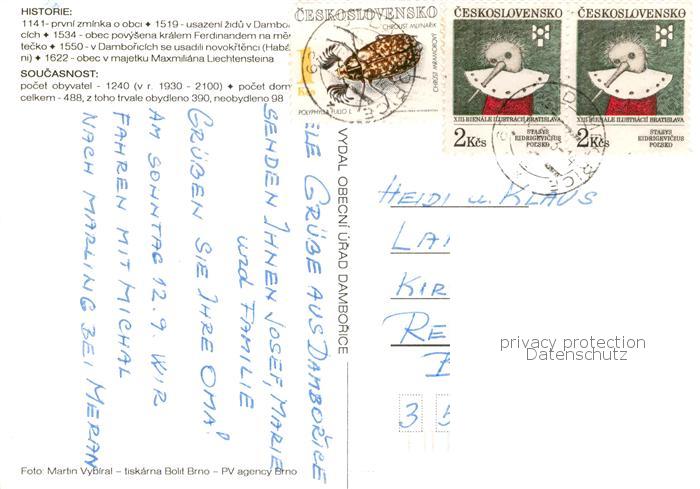 HISTORIE:
1141- první zmínka o obci ✦ 1519 - usazení židů v Dambo
cích ✦ 1534 - obec povýšena králem Ferdinandem na měs
tečko ✦ 1550 - v Dambořicích se usadili novokřtěnci (Habá
ni) ✦ 1622 - obec v majetku Maxmiliána Liechtensteina
SOUČASNOST:
počet obyvatel - 1240 (v r. 1930 - 2100) ✦ počet dom
celkem - 488, z toho trvale obydleno 390, neobydleno 98
ČESKOSLOVENSKO
CHROUST MLYNAŘÍK
CHRÚST MRAMOROVÝ
POLYPHYLLA FULLO L.
1 Kčs
ČESKOSLOVENSKO
XIII BIENÁLE ILUSTRÁCIÍ BRATISLAVA
2 Kčs
STASYS
EIDRIGEVIČIUS
POĽSKO
ČESKOSLOVENSKO
XIII BIENÁLE ILUSTRÁCIÍ BRATISLAVA
2 Kčs
STASYS
EIDRIGEVIČIUS
POĽSKO
VYDAL OBECNÍ ÚŘAD DAMBOŘICE
ELE GRÜßE AUS DAMBOŘICE
SENDEN IHNEN JOSEF, MARIE
und FAMILIE
GRÜßEN SIE IHRE OMA!
AM SONNTAG 12.9. WIR
FAHREN MIT MICHAL
NACH MARLING BEI MERAN
HEIDI u. KLAUS
LA
KIR
RE
3 5
privacy protection
Datenschutz
Foto: Martin Vybíral – tiskárna Bolit Brno – PV agency Brno